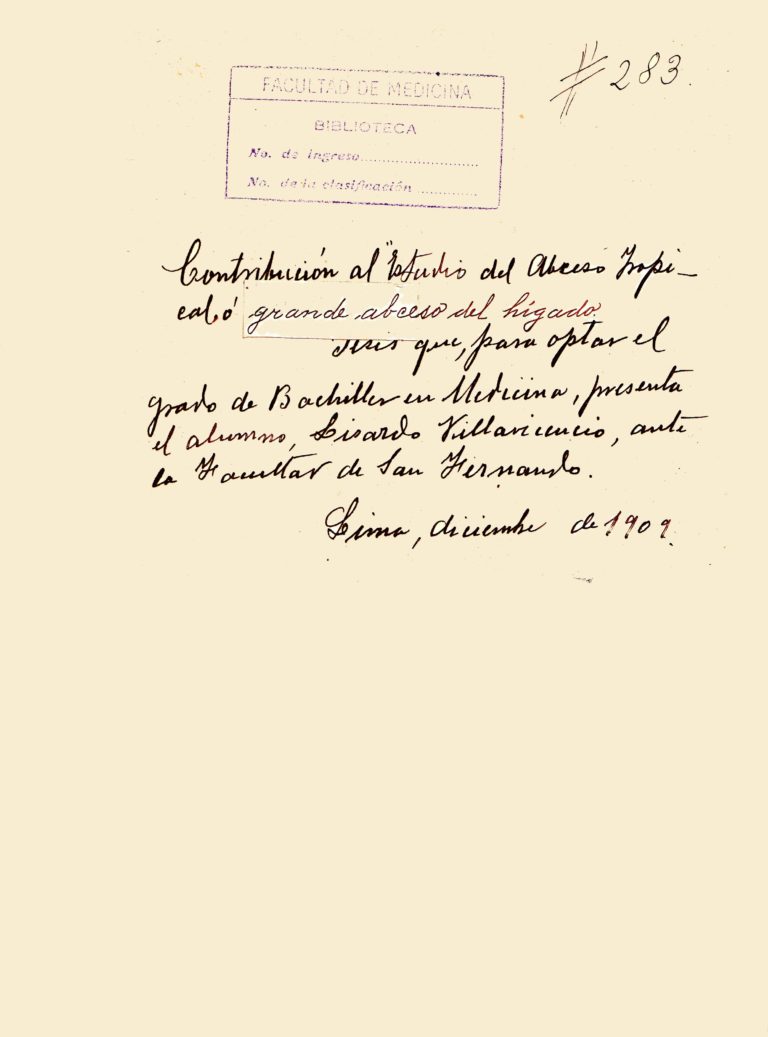 # 283.
FACULTAD DE MEDICINA
BIBLIOTECA
No. de ingreso..............................
No. de la clasificación ...............
Contribución al "Estudio del Abceso Tropi-
cal ó grande abceso del hígado.
Tesis que, para optar el
grado de Bachiller en Medicina, presenta
el alumno, Lisardo Villavicencio, ante
la Facultad de San Fernando.
Lima, diciembre de 1909.